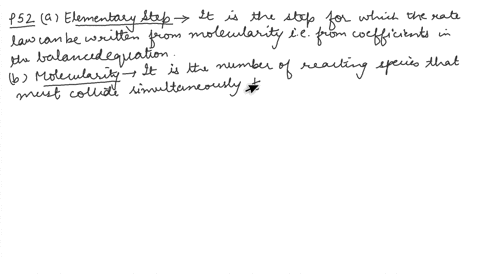 P52 (a) Elementary Step → It is the step for which the rate
law can be written from molecularity i.e. from coefficients in
the balanced equation.
(b) Molecularity → It is the number of reacting species that
must collide simultaneously